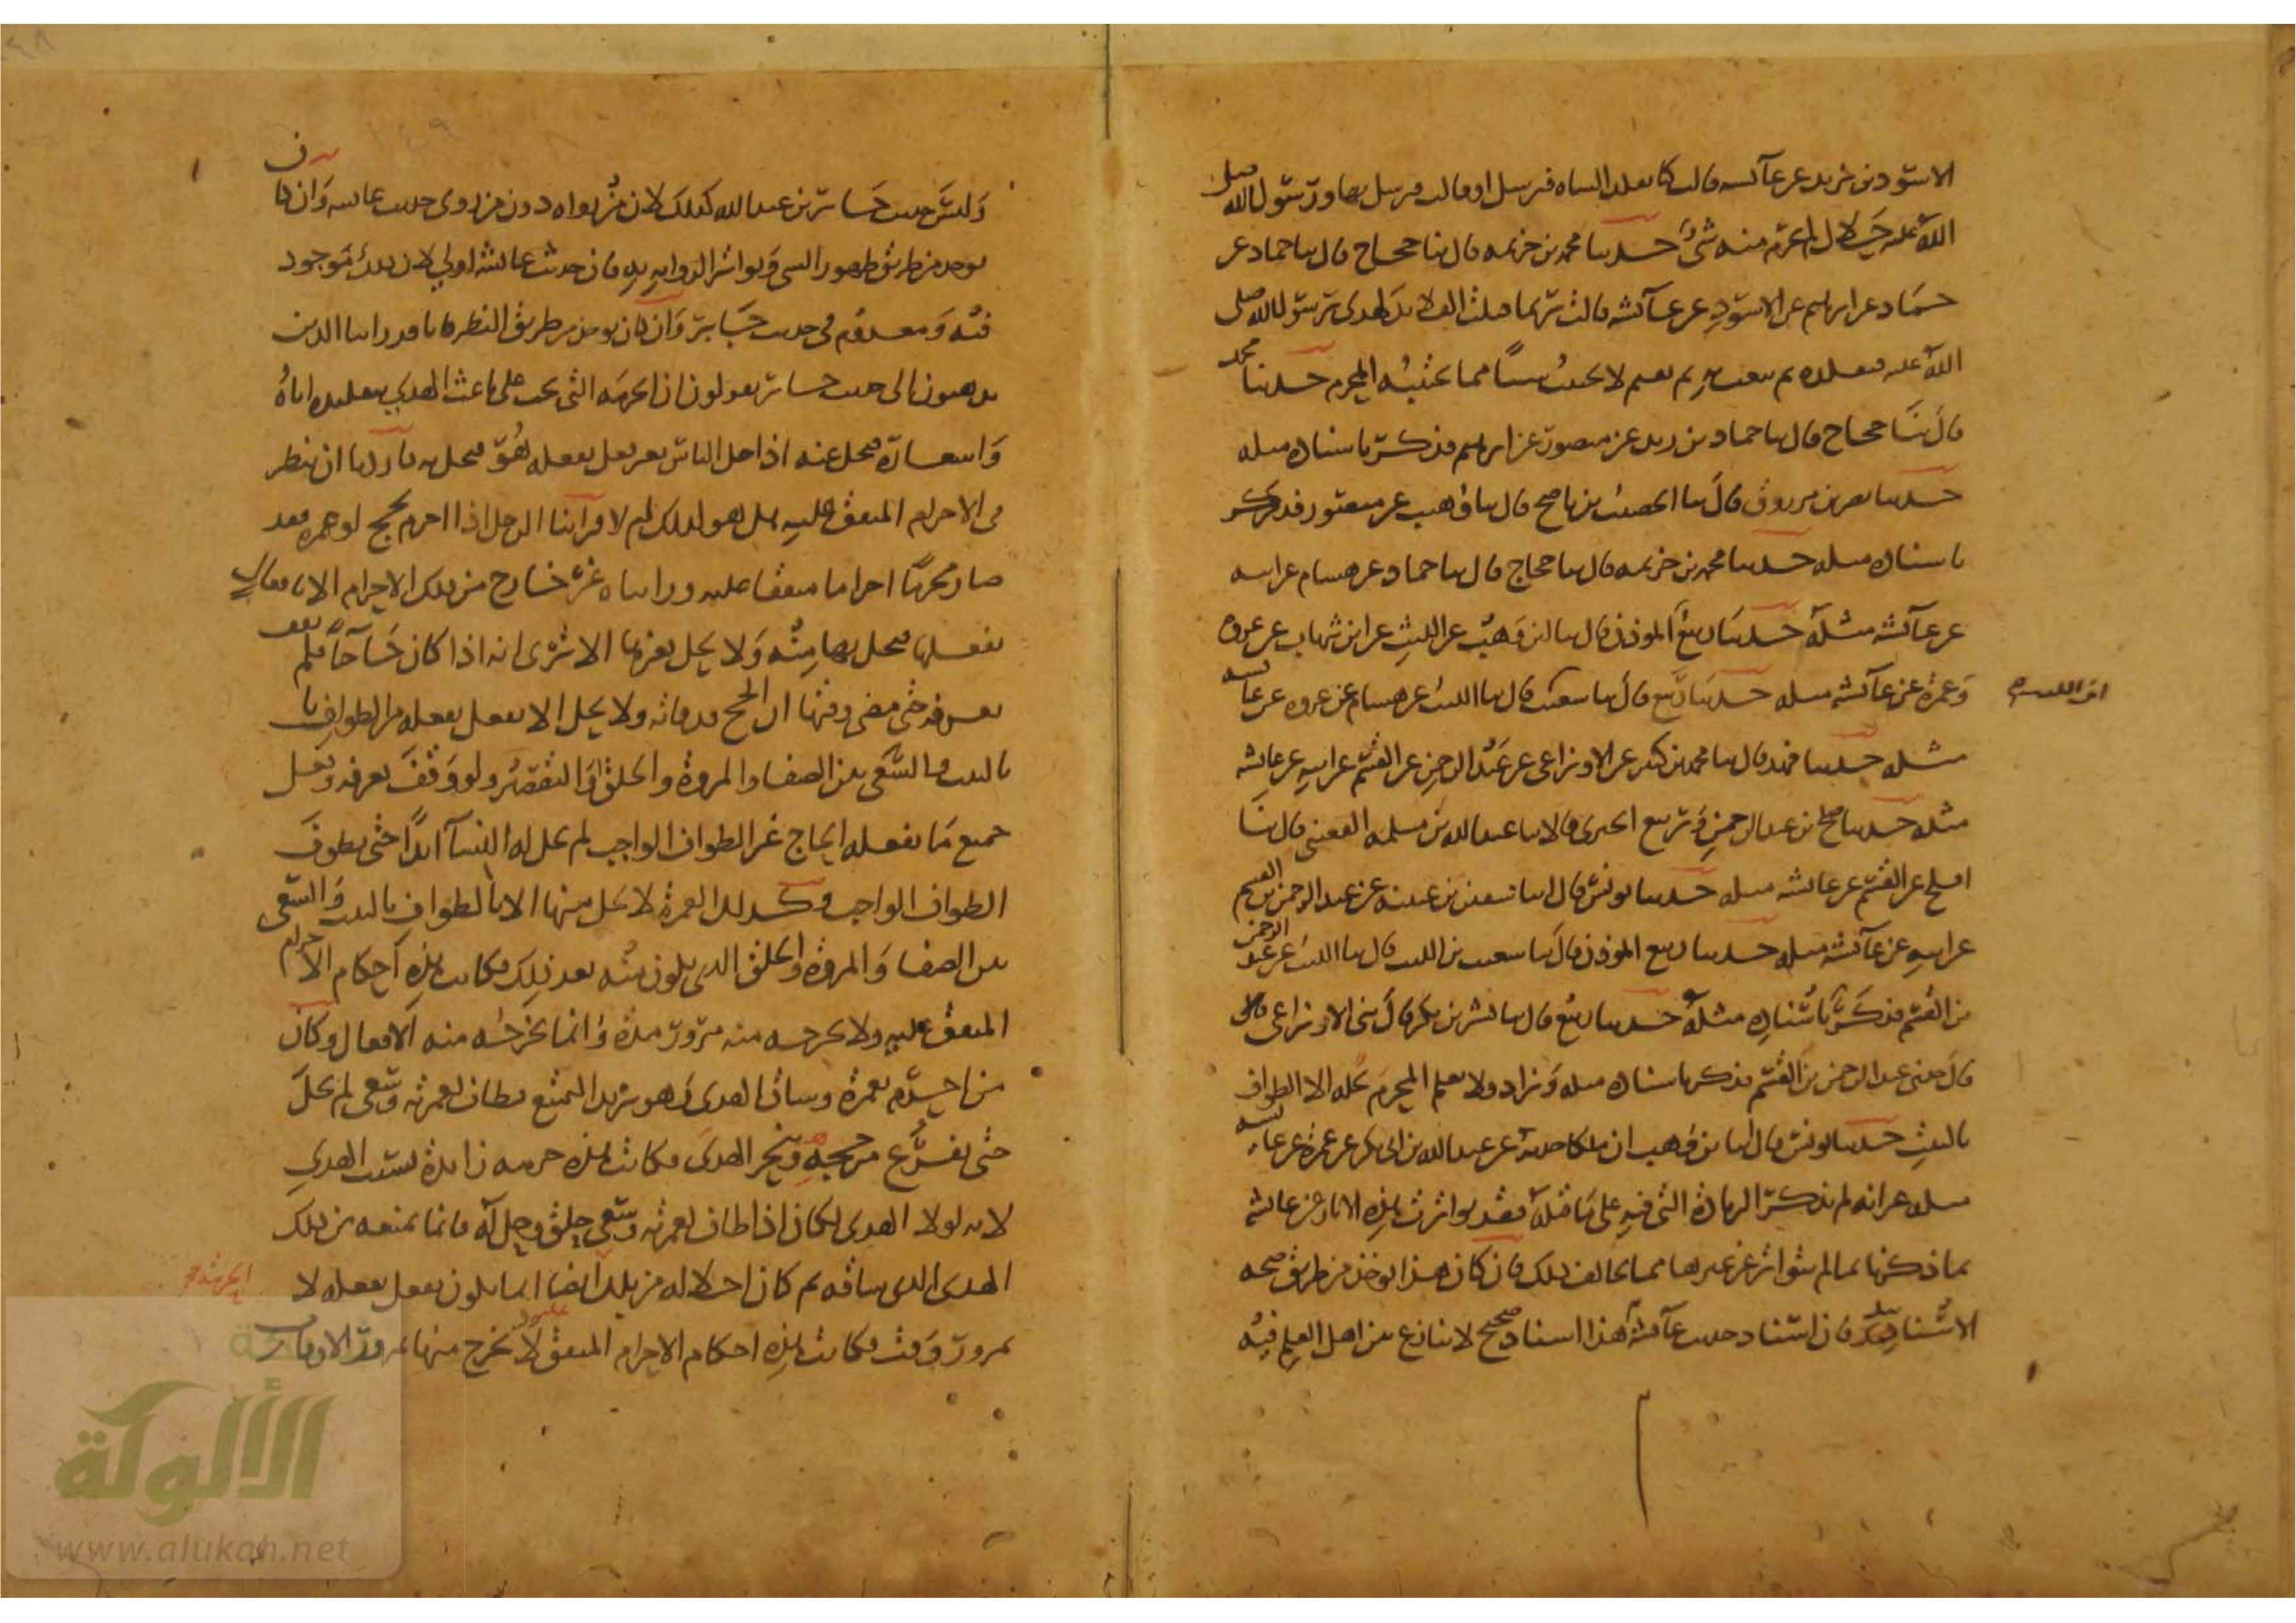 الاسود بن يزيد عن عائشة قالت كنا نقلد الشاة فنرسل او قالت فنرسل بها ورسول الله صلى
الله عليه حلال لم يحرم منه شئ حدثنا محمد بن خزيمه قال ثنا حجاج قال ثنا حماد عن
حماد عن ابرهيم عن الاسود عن عائشه قالت ربما فتلت القلائد لهدى رسول الله صلى
الله عليه فيقلده ثم يبعث به ثم يقيم لا يجتنب شيئا مما يجتنبه المحرم حدثنا محمد
قال ثنا حجاج قال ثنا حماد بن زيد عن منصور عن ابرهيم فذكر باسناده مثله
حدثنا نصر بن مرزوق قال ثنا الخصيب بن ناصح قال ثنا وهيب عن منصور فذكر
باسناده مثله حدثنا محمد بن خزيمه قال ثنا حجاج قال ثنا حماد عن هشام عن ابيه
عن عائشه مثله حدثنا ربيع الموذن قال ثنا ابن وهب عن الليث عن ابن شهاب عن عروه
وعمرة عن عائشه مثله حدثنا ربيع قال ثنا شعيب قال ثنا الليث عن هشام عن عروه عن عائشه
ابن الليث صح
مثله حدثنا فهد قال ثنا محمد بن كثير عن الاوزاعى عن عبد الرحمن عن القسم عن ابيه عن عائشه
مثله حدثنا صلح بن عبد الرحمن وربيع الجيزى قالا ثنا عبد الله بن مسلمه القعنبى قال ثنا
افلح عن القسم عن عائشه مثله حدثنا يونس قال انبا سفين بن عيينه عن عبد الرحمن بن القسم
عن ابيه عن عائشه مثله حدثنا ربيع الموذن قال ثنا شعيب بن الليث قال ثنا الليث عن عبد الرحمن
بن القسم فذكر باسناده مثله حدثنا ربيع قال ثنا بشر بن بكر قال ثنى الاوزاعى قال
قال حدثنى عبد الرحمن بن القسم فذكر باسناده مثله وزاد ولا نعلم المحرم يحله الا الطواف
بالبيت حدثنا يونس قال انبا بن وهب ان ملكا حدثه عن عبد الله بن ابى بكر عن عمرة عن عائشه
مثله غير انه لم يذكر الزيادة التى فيه على ما قبله فقد تواترت هذه الاثار عن عائشه
بما ذكرنا بما لم يتواتر عن غيرها مما يخالف ذلك فان كان هذا يوخذ من طريق صحه
الاسناد فان اسناد حديث عائشة هذا اسناد صحيح لا تنازع بين اهل العلم فيه
وليس حديث جابر بن عبد الله كذلك لان من رواه دون من روى حديث عائشه وان كان
يوخذ من طريق ظهور الشى وتواتر الروايه به فان حديث عائشه اولى لان ذلك موجود
فيه ومعدوم فى حديث جابر وان كان يوخذ من طريق النظر فانا قد راينا الذين
يذهبون الى حديث جابر يقولون ان الحرمه التى تجب على باعث الهدي بتقليده اياهُ
واشعاره يحل عنه اذا حل الناس بغير فعل يفعله هو فيحل به فاردنا ان ننظر
فى الاحرام المتفق عليه هل هو كذلك ام لا فراينا الرجل اذا احرم بحج او عمره فقد
صار محرما احراما متفقا عليه وراينا ه غير خارج من ذلك الاحرام الا بافعال
يفعلها فيحل بها منه ولا يحل بغيرها الا ترى انه اذا كان حاجا فلم يقف
بعرفه حتى مضى وقتها ان الحج قد فاته ولا يحل الا بفعل يفعله من الطواف
بالبيت والسعى بين الصفا والمروة والحلق او التقصير ولو وقف بعرفه وفعل
جميع ما يفعله الحاج غير الطواف الواجب لم يحل له النسآ ابدا حتى يطوف
الطواف الواجب وكذلك العمرة لا يحل منها الا بالطواف بالبيت والسعى
بين الصفا والمروة والحلق الذى يكون منه بعد ذلك فكانت هذه احكام الاحرام
المتفق عليه ولا يخرجه منه مرور مدة وانما يخرجه منه الافعال وكان
من احرم بعمرة وساق الهدى وهو يريد التمتع فطاف لعمرته وسعى لم يحل
حتى يفرغ من حجه وينحر الهدى فكانت هذه حرمه زايدة بسبب الهدي
لانه لولا الهدى لكان اذا طاف لعمرته وسعى حلق وحل له فانما يمنعه من ذلك
الهدى الذى ساقه ثم كان احلاله من ذلك ايضا انما يكون بفعل يفعله لا
بمرور وقت فكانت هذه احكام الاحرام المتفق عليه لا يخرج منها بمرور الاوقات
الألوكة
www.alukah.net